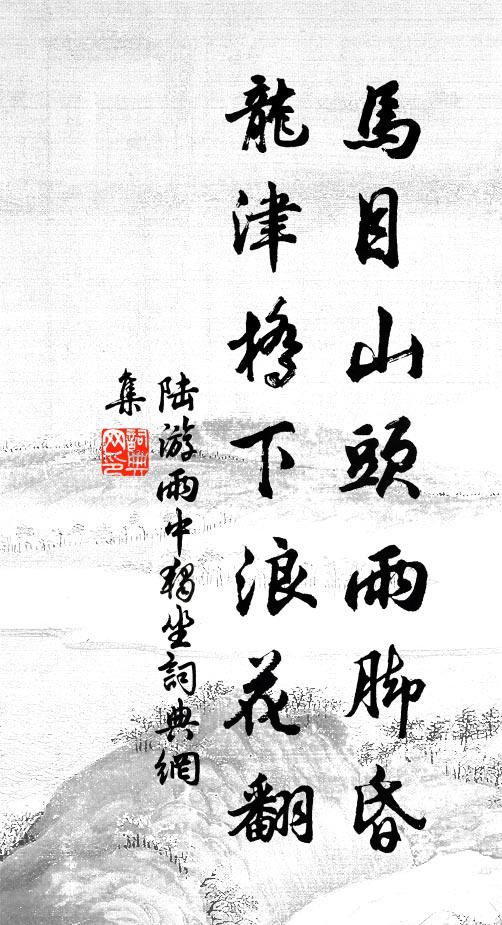 馬目山頭雨脚昏
龍津橋下浪花翻
陸游雨中獨坐詞典網
集
詞典網印